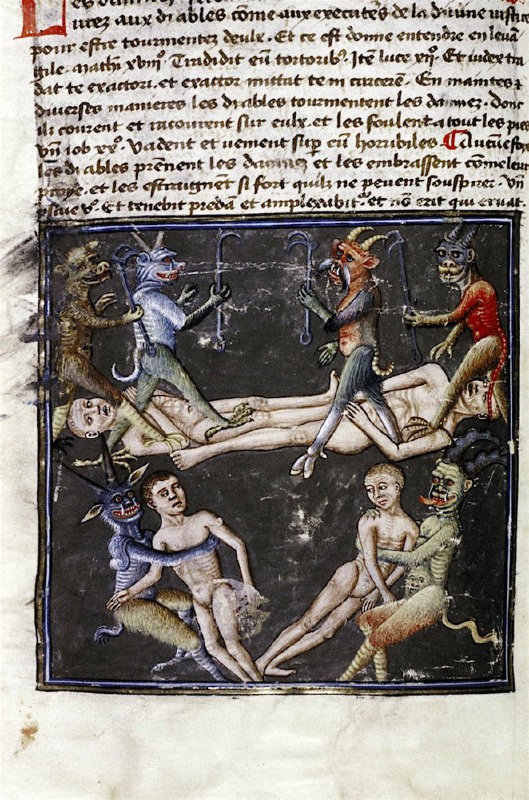 es
urez aux diables cõme aux executeˀs de la diuine iustic
pour estre tourmentez deulx. Et ce est donne entendre en leuã
gile. mathi xviijͤ. Tradidit eũ tortoribꝫ. Itẽ luce xijͤ. Et iudex tra
dat te exactori. et exactor mittat te in carcerem. En maintes et
diuerses manieres les diables tourmentent les dãnez. dont
ilz courent et racourent sur eulx. et les foulent a tout les pies
vñ iob xxͤ. Vadent et uenient sup eũ horribiles. Aucunesfois
les diables prẽnent les dãnez et les embrassent cõme leur
proye. et les estraignent si fort quilz ne peuent souspirer. vñ
ysaie vͤ. Et tenebit predã et amplexabitˀ. et nõ erit qui eruat.